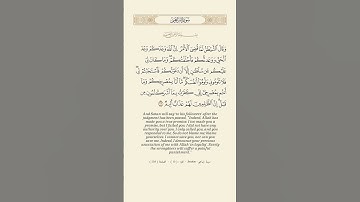 وَقَالَ ٱلشَّيْطَٰنُ لَمَّا قُضِىَ ٱلْأَمْرُ إِنَّ ٱللَّهَ وَعَدَكُمْ وَعْدَ
ٱلْحَقِّ وَوَعَدتُّكُمْ فَأَخْلَفْتُكُمْ ۖ وَمَا كَانَ لِىَ
عَلَيْكُم مِّن سُلْطَٰنٍ إِلَّآ أَن دَعَوْتُكُمْ فَٱسْتَجَبْتُمْ لِى ۖ
فَلَا تَلُومُونِى وَلُومُوٓا۟ أَنفُسَكُم ۖ مَّآ أَنَا۠ بِمُصْرِخِكُمْ وَمَآ
أَنتُم بِمُصْرِخِىَّ ۖ إِنِّى كَفَرْتُ بِمَآ أَشْرَكْتُمُونِ مِن
قَبْلُ ۗ إِنَّ ٱلظَّٰلِمِينَ لَهُمْ عَذَابٌ أَلِيمٌ
And Satan will say to his followers after the
judgment has been passed, "Indeed, Allah has
made you a true promise. I too made you a
promise, but I failed you. I did not have any
authority over you. I only called you, and you
responded to me. So do not blame me; blame
yourselves. I cannot save you, nor can you
save me. Indeed, I denounce your previous
association of me with Allah in loyalty. Surely
the wrongdoers will suffer a painful
punishment."